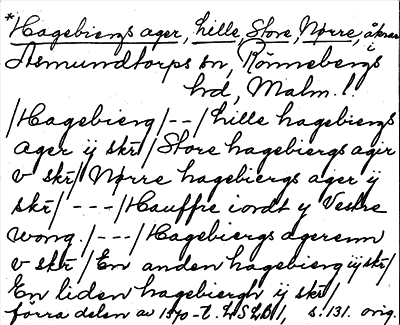 *Hagebiergs ager, Lille, Store, Nørre, åkrar i
Asmundtorps sn, Rönnebergs
hd, Malm. l.
/Hagebierg/--/Lille hagebiergs
ager ij skr/ Store hagebiergs agir
v skr/ Nørre hagebiergs ager ij
skr/ ---/Hauffre iordt y Vestre
wong./---/Hagebiergs agerenn
v skr/ En anden hagebierg iij skr/
En liden hagebiergh ij skr/
förra delen av 1570-t. s. 131. orig.